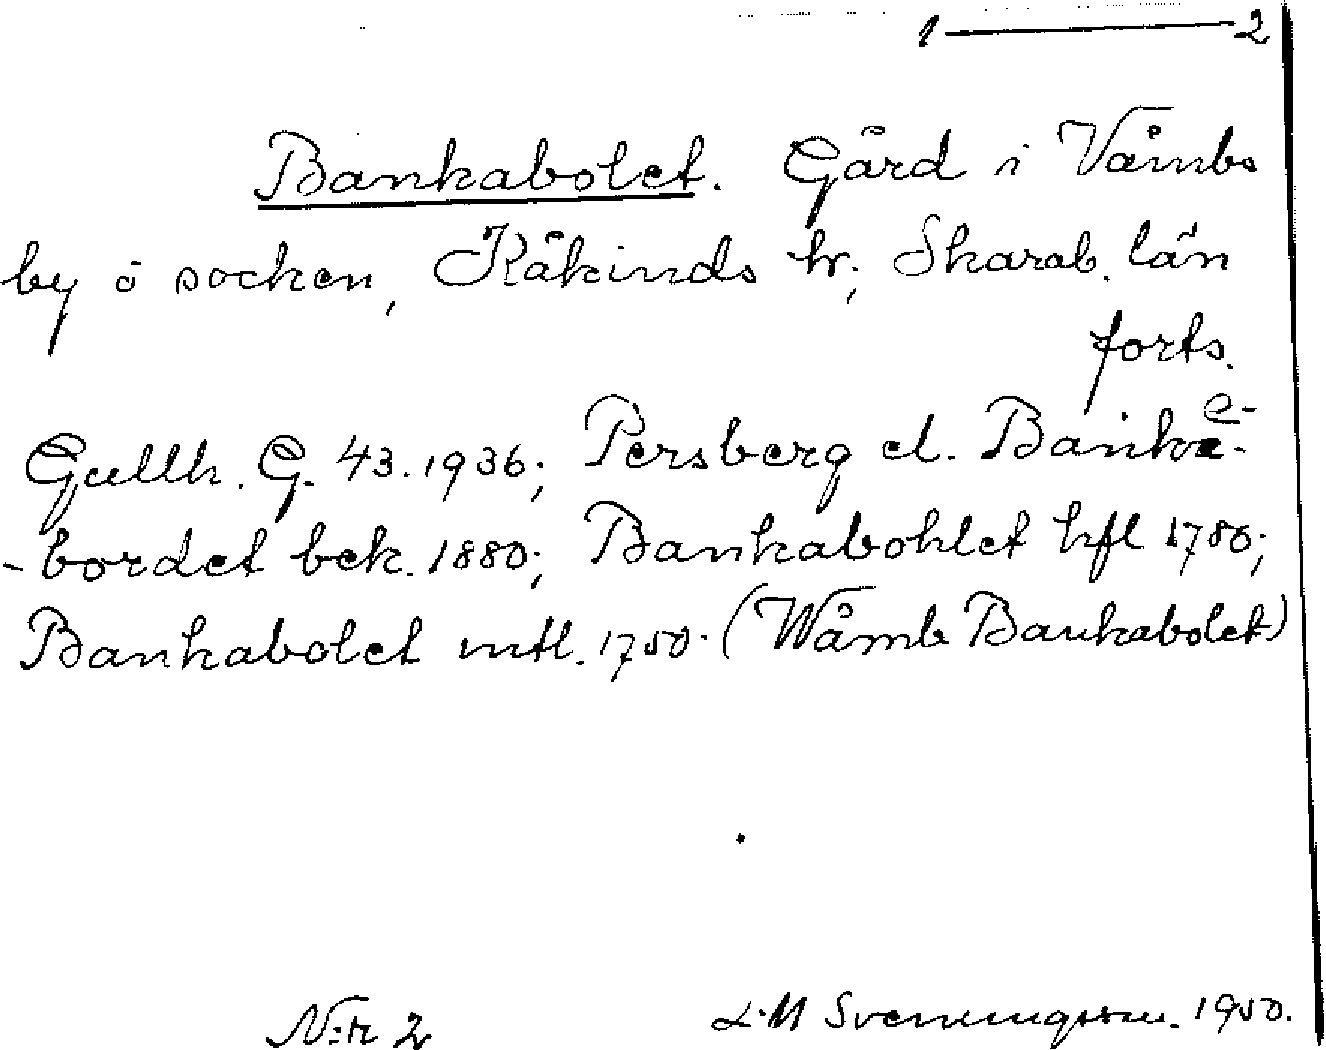 1 — 2
Bankabolet. Gård i Våmbs
by o socken, Kåkinds hr; Skarab. län
forts.
Gullh. G. 43. 1936; Persberg el. Banke-
-bordet bek. 1880; Bankabohlet hfl 1780;
Bankabolet mtl. 1750. (Wåmb Bankabolet)
N:r 2 L.M Svenungsson. 1950.